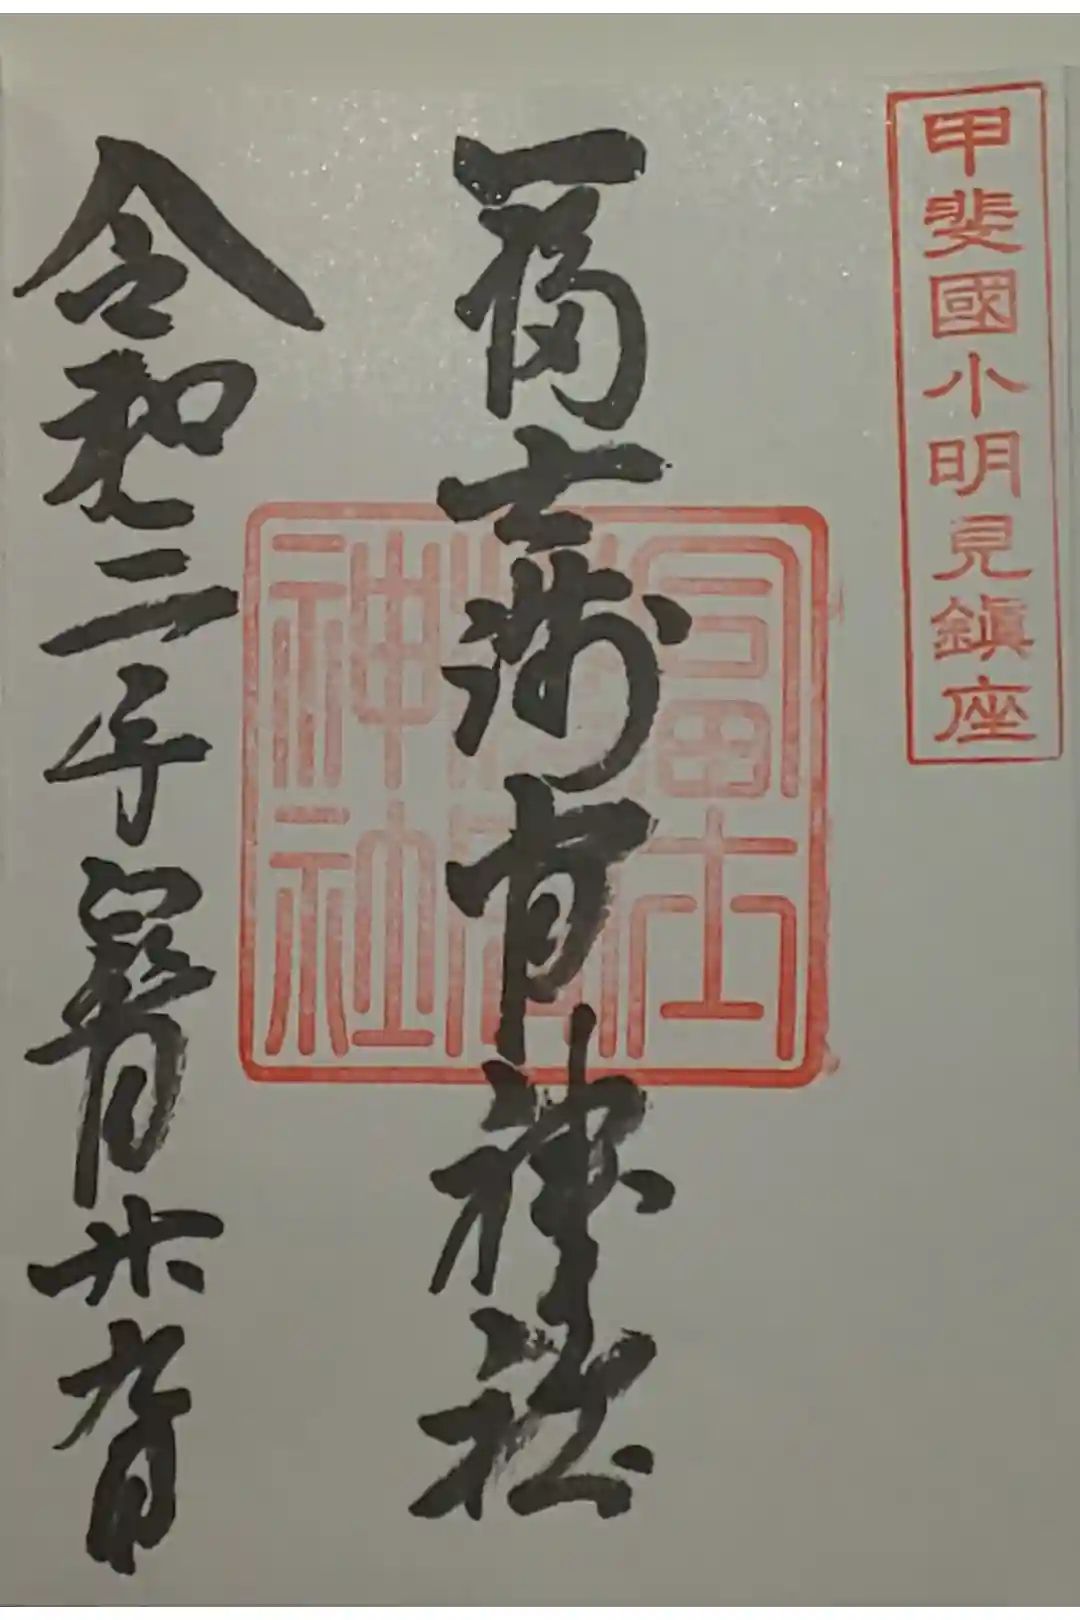 甲斐國小明見鎭座
冨士浅間神社
冨士浅間神社
令和二年 月廿九日